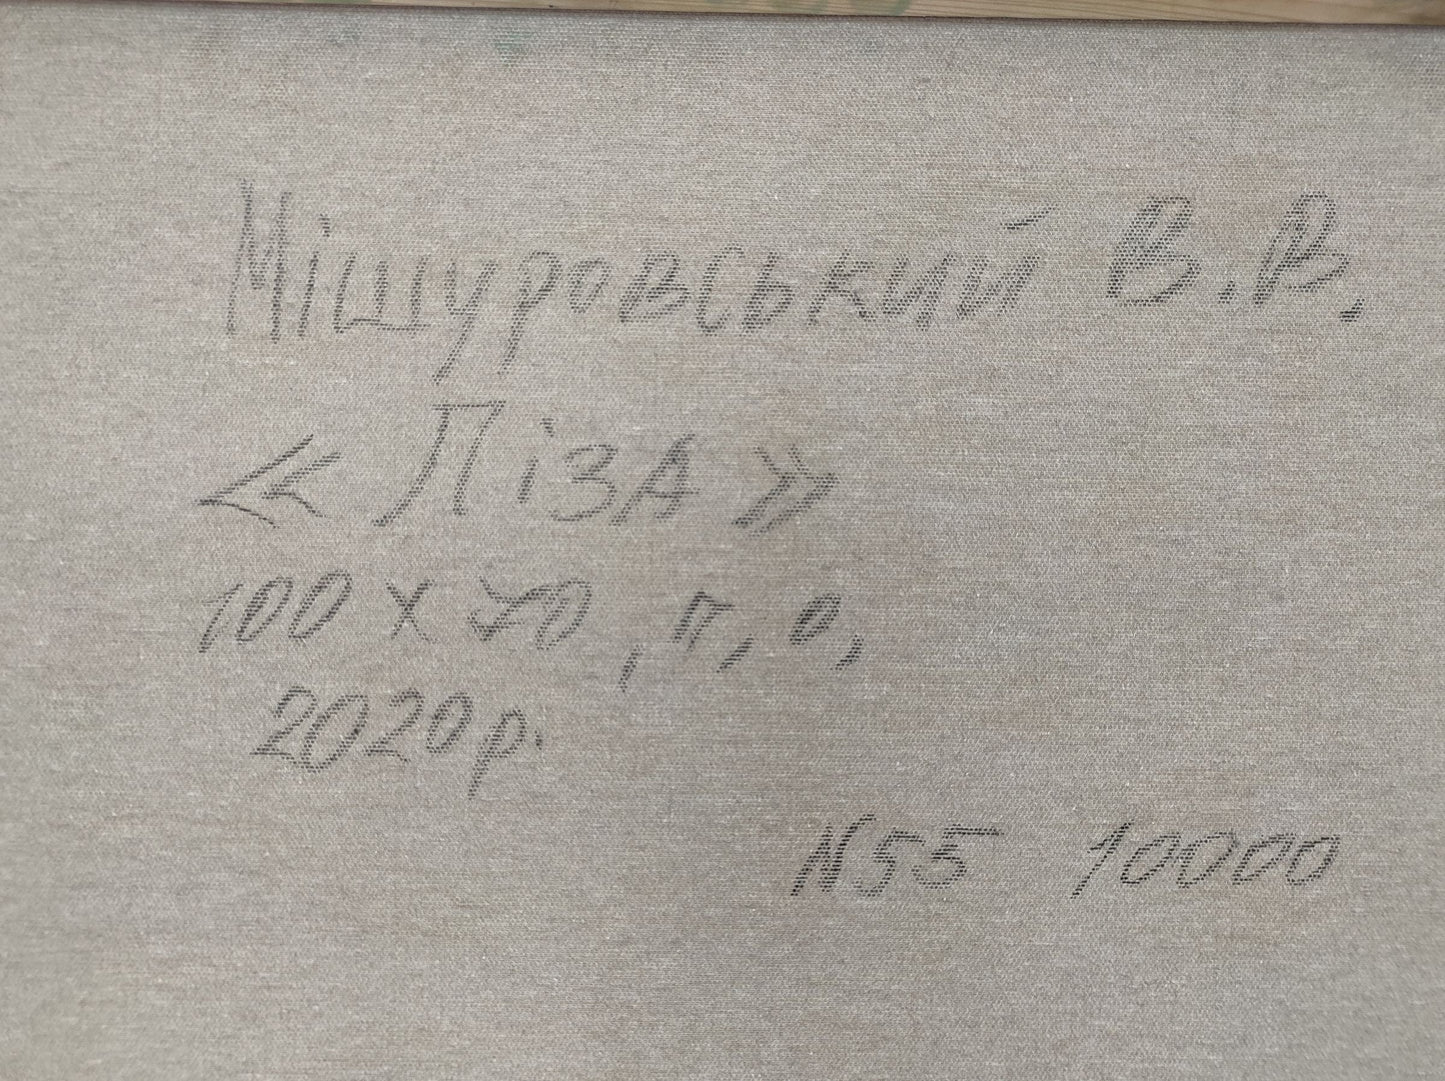 Мішуровський В.В.
« Ліза »
100 х 70, п, о,
2020р.
N55 10000